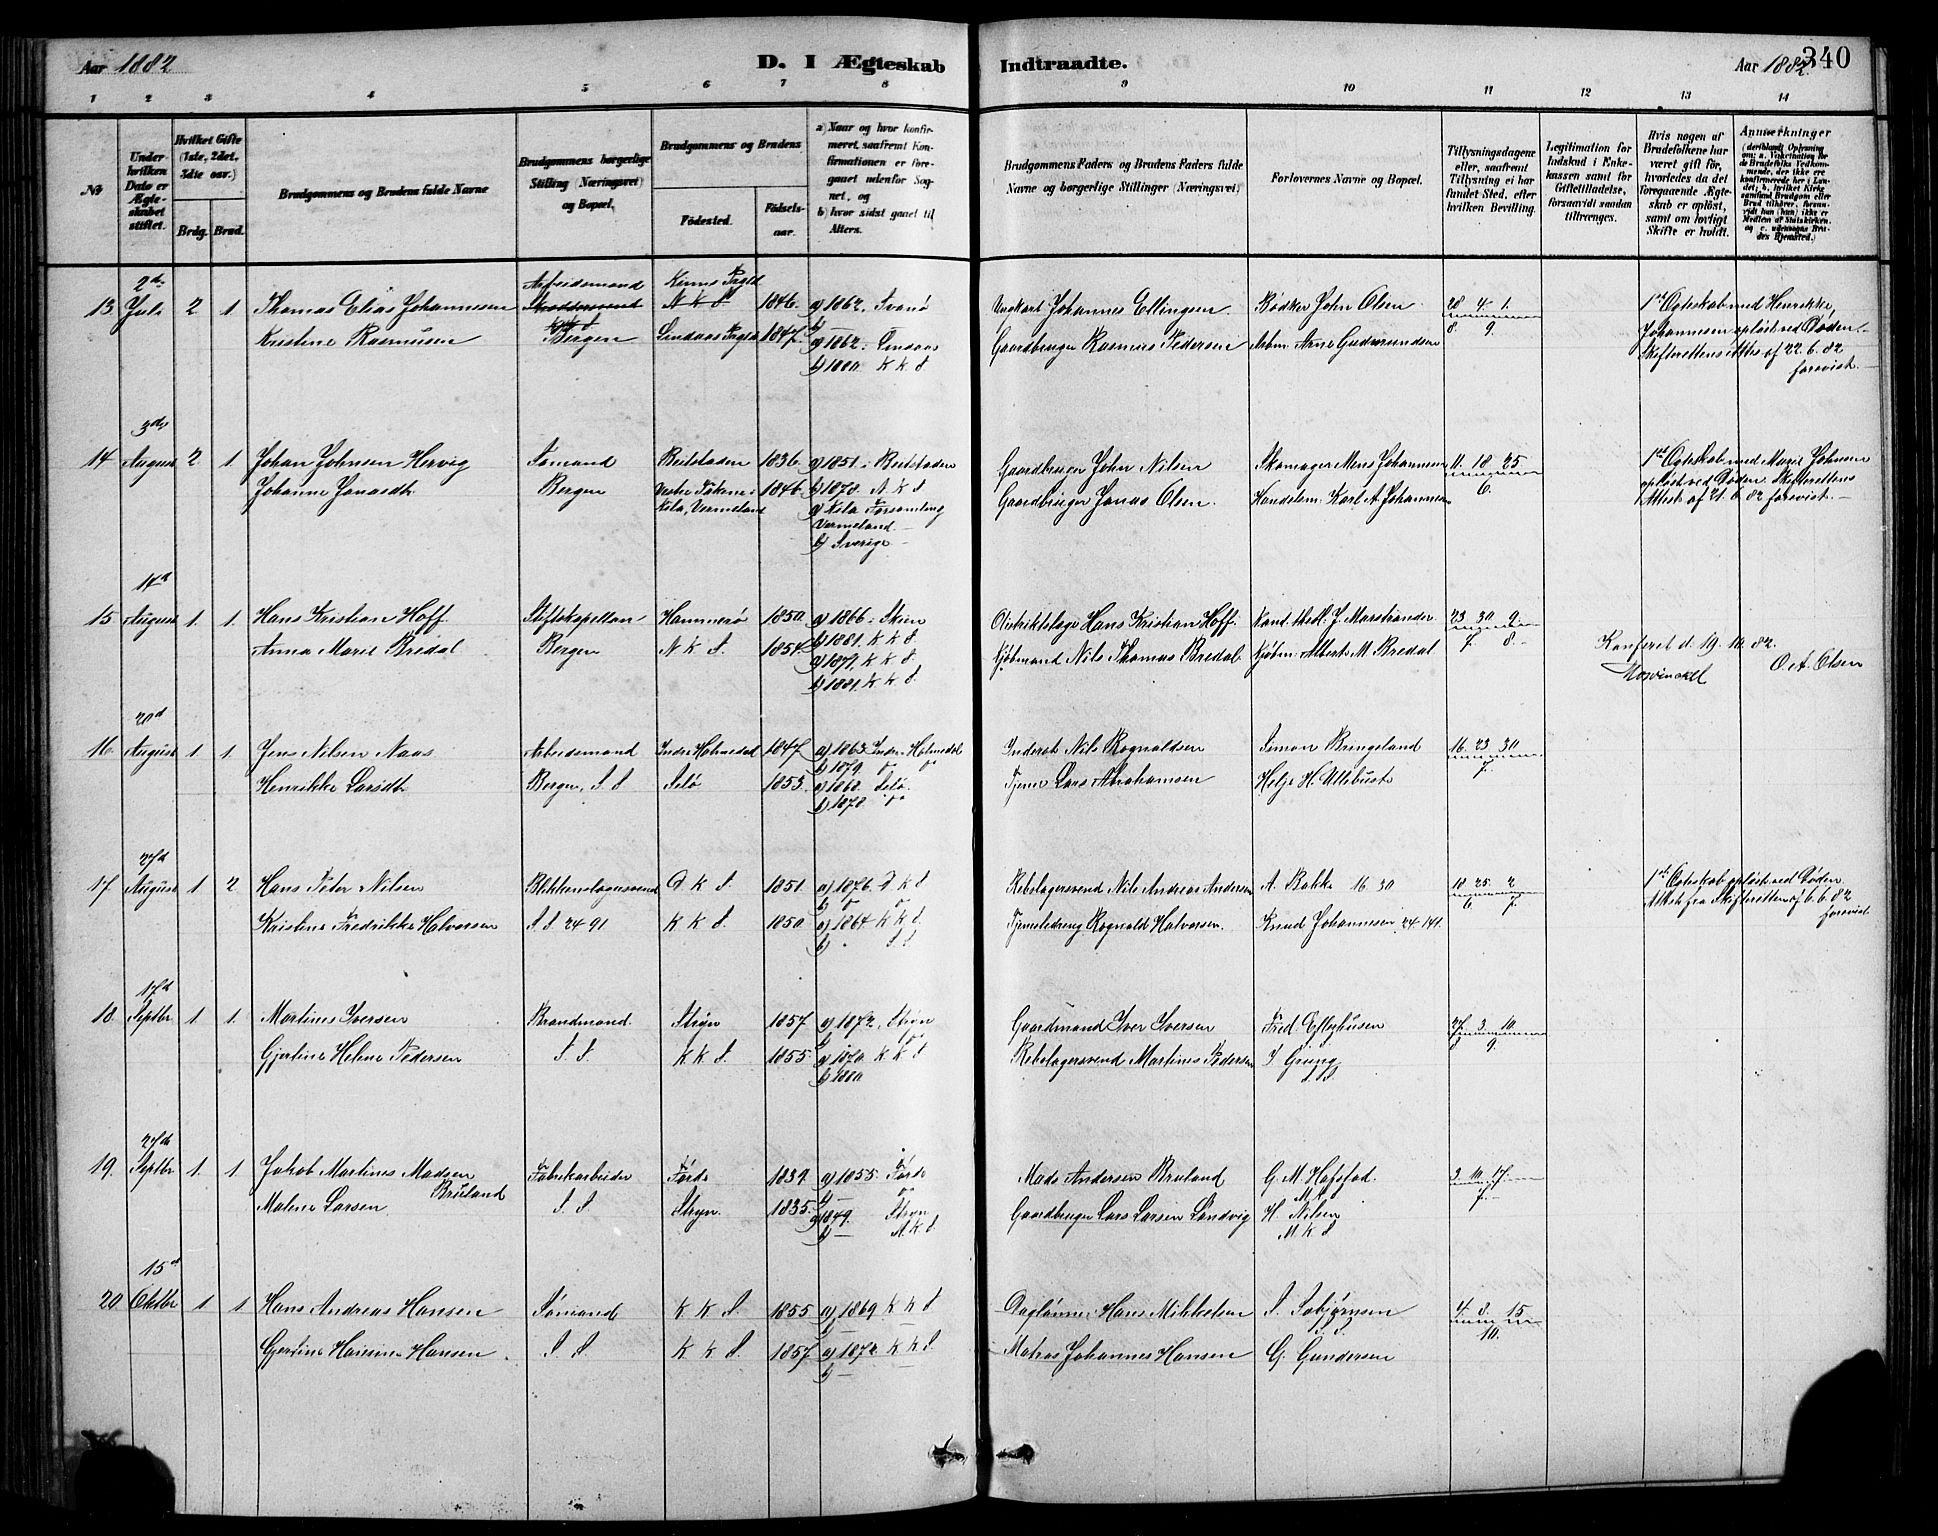 Aar 1882 D. I Ægteskab Indtraadte. Aar 1882. 340
1 2 3 4 5 6 7 8 9 10 11 12 13 14
№
Under hvilken Dato er Ægteskabet stiftet.
Hvilket Gifte (1ste, 2det, 3die osv.)
Brdg. Brud.
Brudgommens og Brudens fulde Navne
Brudgommens borgerlige Stilling (Næringsvei) og Bopæl.
Brudgommens og Brudens
Födested.
Födselsaar.
a) Naar og hvor konfirmeret, saafremt Konfirmationen er foregaaet udenfor Sognet, og
b) hvor sidst gaaet til Alters.
Brudgommens Faders og Brudens Faders fulde Navne og borgerlige Stillinger (Næringsvei)
Forlovernes Navne og Bopæl.
Tillysningsdagene eller, saafremt Tillysning ei har fundet Sted, efter hvilken Bevilling.
Legitimation for Indskud i Enkekassen samt for Giftetilladelse, forsaavidt saadan tiltrænges.
Hvis nogen af Brudefolkene har været gift før, hvorledes da det foregaaende Ægteskab er oplöst, samt om lovligt Skifte er holdt.
Anmærkninger
2den Arbeidsmand Kinns Prgld
13. Juli 2 1 Thomas Elias Johannesen N K S 1846. a) 1862. Svanø Johannes Ellingsen Bødker John Olsen 28 4 1. 1ste Ægteskab med Henrikke
Kristine Rasmussen Bergen Lindaas Prgld 1847. a) 1862. Lindaas Gaardbruger Rasmus Pedersen Arbm. Arne Gudmundsen 8 9. Johannesen opløst ved Døden
b) 1880. K K S Skifterettens Attes af 22. 6. 82
forevist.
3die
14 August 2. 1. Johan Johnsen Hervig Sømand Beitstaden 1836. a) 1851. Beitstaden Gaardbruger John Nilsen Skomager Mons Johannesen 11. 18 25 1ste Ægteskab med Marie Johnsen
Johanne Jonasdtr. Bergen 1846. b) 1878. N K S Gaardbruger Jonas Olsen. Handelsm. Karl A Johannesen 6. opløst ved Døden Skifterettens
Kila, Vermeland a) Kila Forsamling Attest af 21. 6. 82 forevist.
Vermeland.
b) Sverige
14d
15. August 1. 1. Hans Kristian Hoff. Stiftskapellan Hammerø 1850. a) 1866. Skien Distriktslæge Hans Kristian Hoff. Kand. theol. J. Marstrander 23 30 9.
Anna Marie Bredal Bergen N K S. 1854. b) 1881. K K S Kjøbmand Nils Thomas Bredal Kjøbm. Albert M Bredal 7. 8. Konfereret d. 19. 10. 82.
a) 1871. K K S O. A. Olsen
b) 1881. K K S.
20d
16. August 1. 1. Jens Nilsen Naas Arbeidsmand Indre Holmedal 1847 a) 1863. Indre Holmedal Inderst Nils Rognaldsen Simon Bringeland 16. 23 30
Henrikke Larsdtr. Bergen, S S Selø 1853. b) 1879. Tjener Lars Abrahamsen Helje H. Ullebust 7.
a) 1868. Selø.
b) 1878.
27d
17. August 1 2 Hans Peter Nilsen Blikkenslagersvend D K S. 1851. a) 1876. D K S Rebslagersvend Nils Andreas Andersen A. Bakke 16. 30 18 25. 2 1ste Ægteskab opløst ved Døden
Kristine Fredrikke Halvorsen S S 24 91 K K S. 1850. a) 1864. K K S Tjenestedreng Rognald Halvorsen. Knud Johannesen 24 141. 6 7. Attest fra Skifteretten af 6. 6. 82
b) S S forevist
17d
18. Septbr 1. 1. Martinus Iversen Brandmand. Stryn 1857 a) 1872. Stryn Gaardmand Iver Iversen 27. 3. 10.
Gjertine Helene Pedersen S. S. K K S 1855. a) 1870. K K S Rebslagersvend Martinus Pedersen I Grung 8 9.
b) 1880. S. S.
27de
19. Septbr 1. 1. Jakob Martinus Madsen Fabrikarbeider Førde 1839. a) 1855. Førde Mads Andersen Bruland G. M. Hafstad. 3. 10. 17.
Bruland
Malene Larsen S. S Stryn. 1835. a) 1849. Stryn Gaardbruger Lars Larsen Sandvig H. Nilsen 7.
b) — N. K S. M K S
15d
20 Oktbr 1 1 Hans Andreas Hansen Sømand K K S. 1855 a) 1869. K K S Daglønner Hans Mikkelsen S. Sobjørnsen 4. 8. 15
Gjertine Hansine Hansen. S. S. K K S. 1857. a) 1872. K K S. Matros Johannes Hansen G. Gundersen 10.
b) —